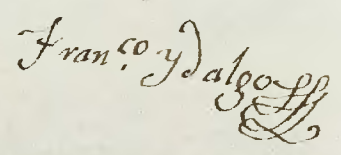 Fran.co ydalgo